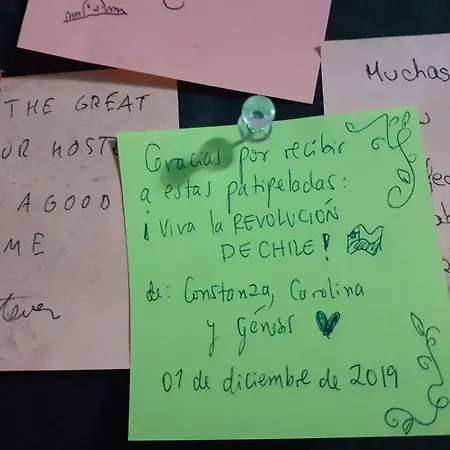 THE GREAT
A GOOD
ME
Muchas
Gracias por recibir
a estas patipeladas:
¡Viva la REVOLUCIÓN
DE CHILE!
de: Constanza, Carolina
y Génesis
01 de diciembre de 2019